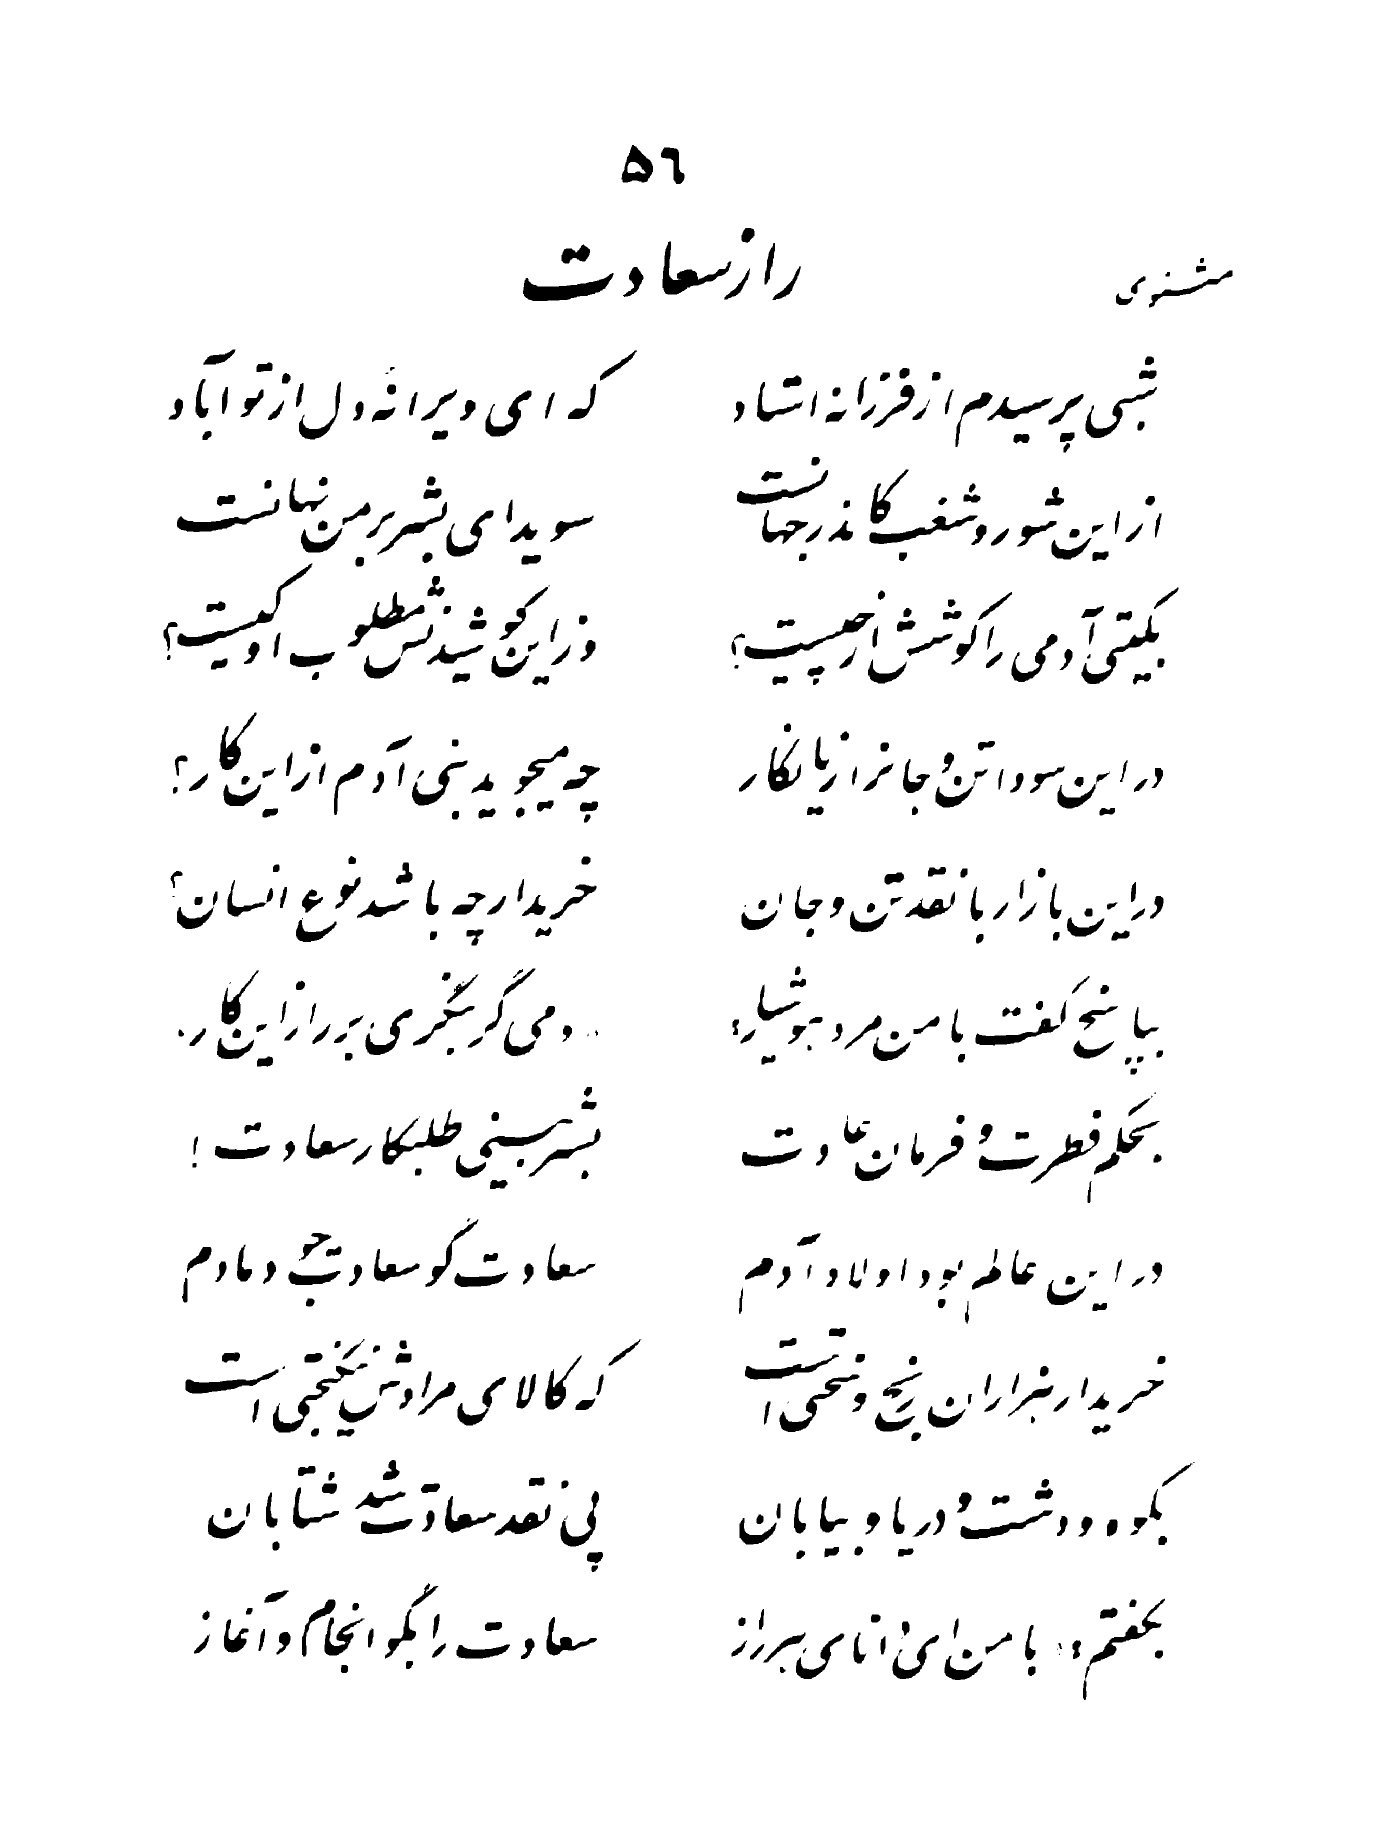 ۵۶
راز سعادت
مثنوی
شبی پرسیدم از فرزانه استاد    که ای ویرانهٔ دل از تو آباد
از این شور و شغب کاندر جهانست    سویدای بشر بر من نهانست
بگیتی آدمی را کوشش از چیست؟    وز این کوشیدنش مطلوب او کیست؟
در این سودا تن و جانرا زیانکار    چه میجوید بنی آدم از این کار؟
در این بازار با نقد تن و جان    خریدار چه باشد نوع انسان؟
بپاسخ گفت با من مرد هوشیار:    دمی گر بنگری بر راز این کار.
بحکم فطرت و فرمان عادت    بشر بینی طلبکار سعادت!
در این عالم بود اولاد آدم    سعادت گو سعادت جو دمادم
خریدار هزاران رنج و سختی است    که کالای مرادش نیکبختی است
بکوه و دشت و دریا و بیابان    پی نقد سعادت شد شتابان
بگفتم: با من ای دانای هر راز    سعادت را بگو انجام و آغاز